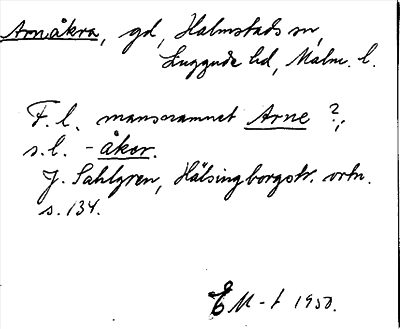 Arnåkra, gd, Halmstads sn,
Luggude hd, Malm. l.
F. l. mansnamnet Arne ?;
s. l. - åker.
J. Sahlgren, Hälsingborgstr. ortn.
s. 134.
1950.